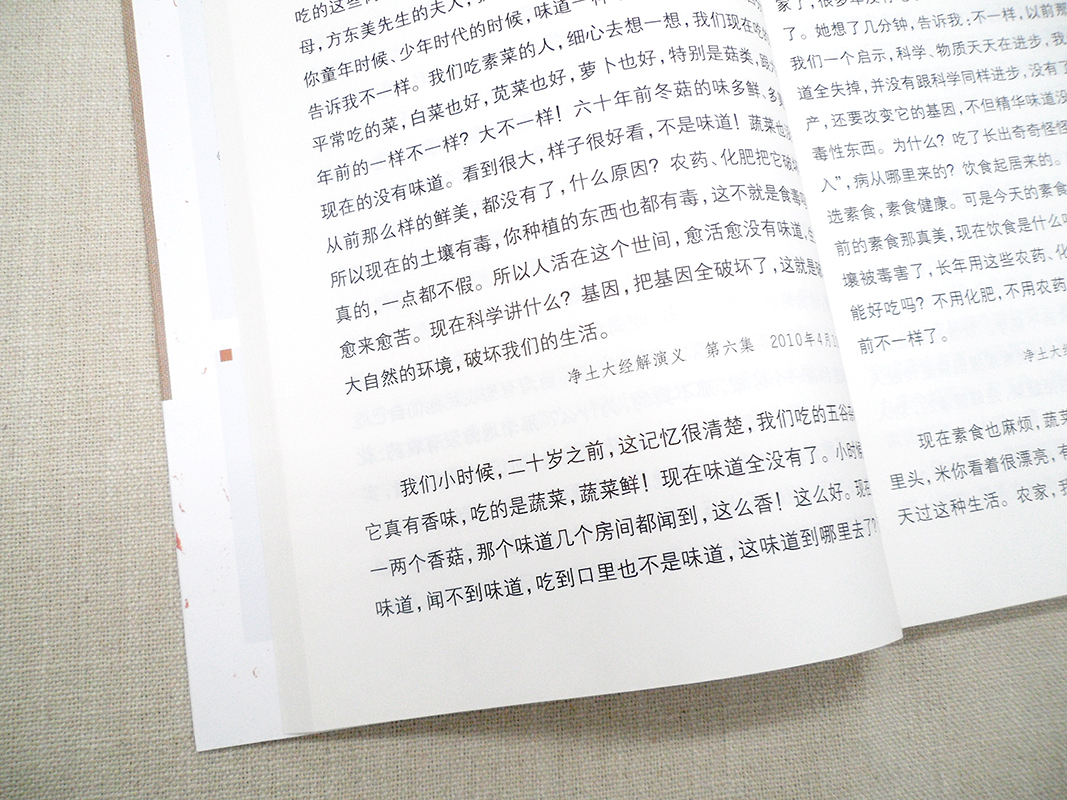 吃的这些
母，方东美先生的夫人，
你童年时候、少年时代的时候，味道一样
告诉我不一样。我们吃素菜的人，细心去想一想，我们现在吃
平常吃的菜，白菜也好，苋菜也好，萝卜也好，特别是菇类，
年前的一样不一样？大不一样！六十年前冬菇的味多鲜、多
现在的没有味道。看到很大，样子很好看，不是味道！蔬菜也
从前那么样的鲜美，都没有了，什么原因？农药、化肥把它破坏
所以现在的土壤有毒，你种植的东西也都有毒，这不就是食毒
真的，一点都不假。所以人活在这个世间，愈活愈没有味道，
愈来愈苦。现在科学讲什么？基因，把基因全破坏了，这就是
大自然的环境，破坏我们的生活。
净土大经解演义 第六集 2010年4月
我们小时候，二十岁之前，这记忆很清楚，我们吃的五谷
它真有香味，吃的是蔬菜，蔬菜鲜！现在味道全没有了。小时候
一两个香菇，那个味道几个房间都闻到，这么香！这么好。现在
味道，闻不到味道，吃到口里也不是味道，这味道到哪里去了？
家了，很多年没有
了。她想了几分钟，告诉我：不一样，以前那
我们一个启示，科学、物质天天在进步，我
道全失掉，并没有跟科学同样进步，没有了
产，还要改变它的基因，不但精华味道没
毒性东西。为什么？吃了长出奇奇怪怪
入”，病从哪里来的？饮食起居来的。
选素食，素食健康。可是今天的素食
前的素食那真美，现在饮食是什么
壤被毒害了，长年用这些农药、化
能好吃吗？不用化肥，不用农药
前不一样了。
净土大经
现在素食也麻烦，蔬菜
里头，米你看着很漂亮，有
天过这种生活。农家，我